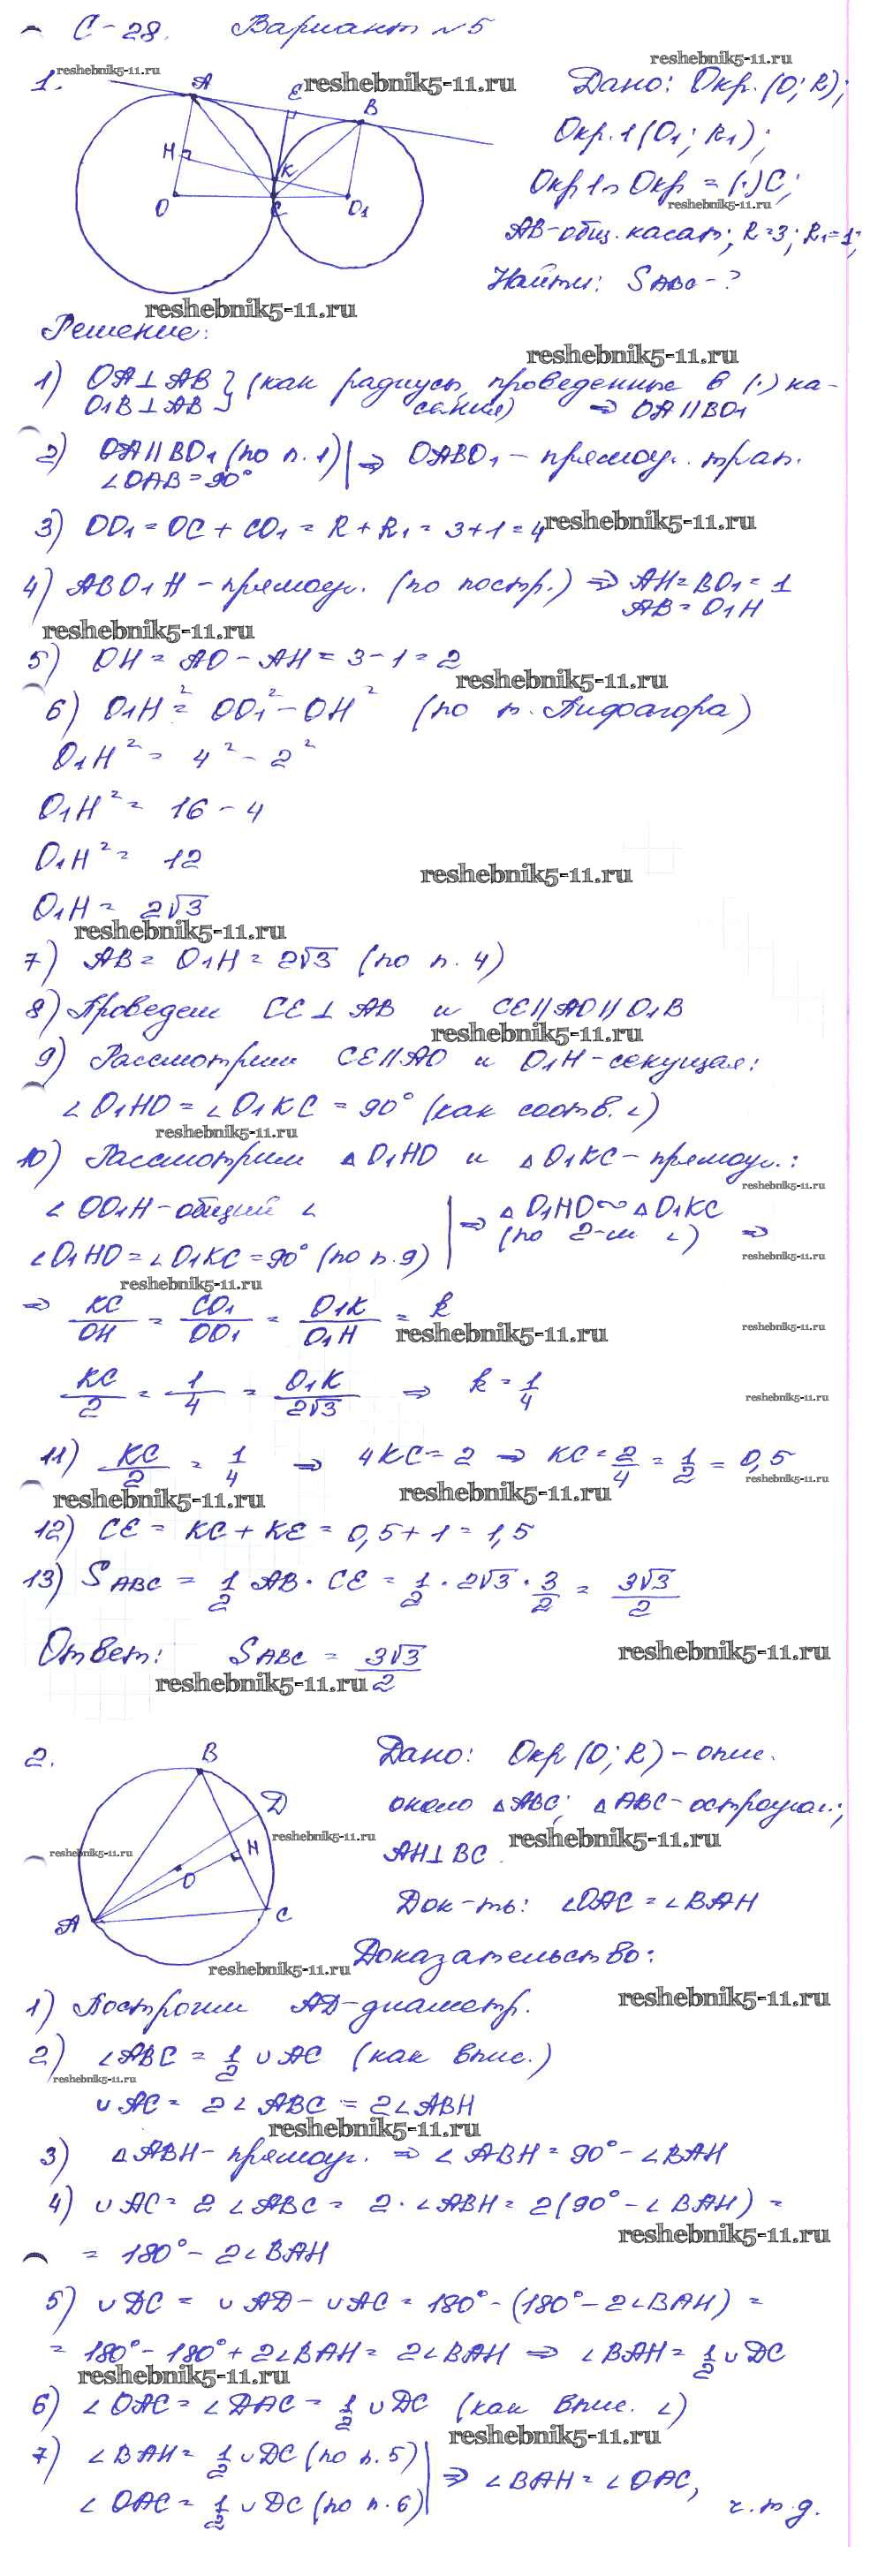 С-28. Вариант №5
reshebnik5-11.ru
1.
reshebnik5-11.ru
A E B H K O C O₁
reshebnik5-11.ru
Дано: Окр.(O; R);
Окр.1(O₁; R₁);
Окр1∩Окр = (·)C;
reshebnik5-11.ru
AB-общ. касат; R=3; R₁=1;
Найти: S ABC - ?
reshebnik5-11.ru
Решение:
reshebnik5-11.ru
1) OA⊥AB } (как радиусы, проведенные в (·) ка-
O₁B⊥AB } сания) ⇒ OA∥BO₁
2) OA∥BO₁ (по п.1) | ⇒ OABO₁ – прямоуг. трап.
∠OAB=90°
3) OO₁ = OC + CO₁ = R + R₁ = 3+1 = 4
reshebnik5-11.ru
4) ABO₁H – прямоуг. (по постр.) ⇒ AH=BO₁=1
AB=O₁H
reshebnik5-11.ru
5) OH = AO – AH = 3–1 = 2
reshebnik5-11.ru
6) O₁H² = OO₁² – OH² (по т. Пифагора)
O₁H² = 4² – 2²
O₁H² = 16 – 4
O₁H² = 12
reshebnik5-11.ru
O₁H = 2√3
reshebnik5-11.ru
7) AB = O₁H = 2√3 (по п. 4)
8) Проведем CE⊥AB и CE∥AO∥O₁B
reshebnik5-11.ru
9) Рассмотрим CE∥AO и O₁H-секущая:
∠O₁HO = ∠O₁KC = 90° (как соотв. ∠)
reshebnik5-11.ru
10) Рассмотрим △O₁HO и △O₁KC – прямоуг.:
reshebnik5-11.ru
∠OO₁H-общий ∠ | ⇒ △O₁HO∾△O₁KC
∠O₁HO = ∠O₁KC = 90° (по п.9) | (по 2-м ∠) ⇒
reshebnik5-11.ru
reshebnik5-11.ru
⇒ KC/OH = CO₁/OO₁ = O₁K/O₁H = k
reshebnik5-11.ru
reshebnik5-11.ru
KC/2 = 1/4 = O₁K/2√3 ⇒ k = 1/4
reshebnik5-11.ru
11) KC/2 = 1/4 ⇒ 4KC = 2 ⇒ KC = 2/4 = 1/2 = 0,5
reshebnik5-11.ru
reshebnik5-11.ru
reshebnik5-11.ru
12) CE = KC + KE = 0,5 + 1 = 1,5
13) S ABC = 1/2 AB · CE = 1/2 · 2√3 · 3/2 = 3√3/2
Ответ: S ABC = 3√3/2
reshebnik5-11.ru
reshebnik5-11.ru
2.
B D H O A C
reshebnik5-11.ru
reshebnik5-11.ru
Дано: Окр(O; R) – опис.
около △ABC; △ABC-остроугол.;
reshebnik5-11.ru
AH⊥BC.
Док-ть: ∠OAC = ∠BAH
reshebnik5-11.ru
Доказательство:
reshebnik5-11.ru
1) Построим AD-диаметр.
2) ∠ABC = 1/2 ∪AC (как впис.)
reshebnik5-11.ru
∪AC = 2∠ABC = 2∠ABH
reshebnik5-11.ru
3) △ABH – прямоуг. ⇒ ∠ABH = 90° – ∠BAH
4) ∪AC = 2∠ABC = 2·∠ABH = 2(90° – ∠BAH) =
reshebnik5-11.ru
= 180° – 2∠BAH
5) ∪DC = ∪AD – ∪AC = 180° – (180° – 2∠BAH) =
= 180° – 180° + 2∠BAH = 2∠BAH ⇒ ∠BAH = 1/2 ∪DC
reshebnik5-11.ru
6) ∠OAC = ∠DAC = 1/2 ∪DC (как впис. ∠)
reshebnik5-11.ru
7) ∠BAH = 1/2 ∪DC (по п.5) | ⇒ ∠BAH = ∠OAC,
∠OAC = 1/2 ∪DC (по п.6) | ч.т.д.